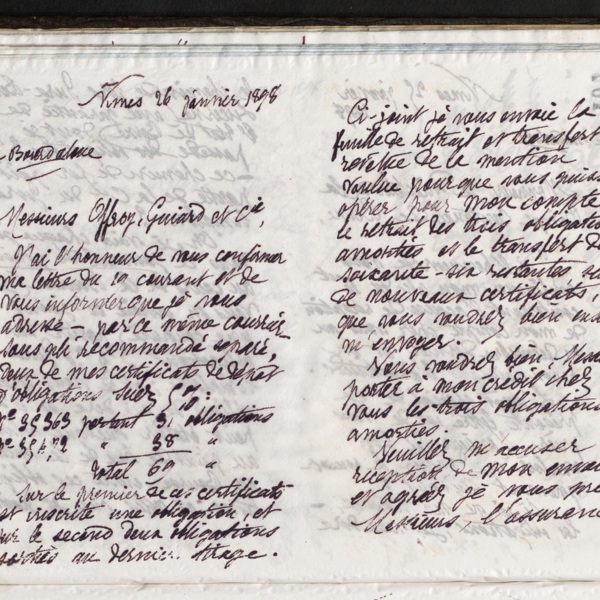 Nîmes 26 janvier 1898
Bourdaloue
Messieurs Offroy, Guiard et Cie,
J'ai l'honneur de vous confirmer
ma lettre du 19 courant et de
vous informer que je vous
adresse – par ce même courrier
sous pli recommandé séparé,
deux de mes certificats de dépôt
d'obligations Suez 5%:
No 35363 portant 31 obligations
" 38 "
Total 69 "
Sur le premier de ces certificats
est inscrite une obligation, et
sur le second deux obligations
sorties au dernier tirage.
Ci-joint je vous envoie la
feuille de retrait et transfert
revêtue de la mention
voulue pour que vous puissiez
opérer pour mon compte
le retrait des trois obligations
amorties et le transfert de
soixante-six restantes su
de nouveaux certificats,
que vous voudrez bien ens
m'envoyer.
Vous voudrez bien, Mess
porter à mon crédit chez
vous les trois obligations
amorties.
Veuillez m'accuser
réception de mon envoi
et agréez je vous prie
Messieurs, l'assurance